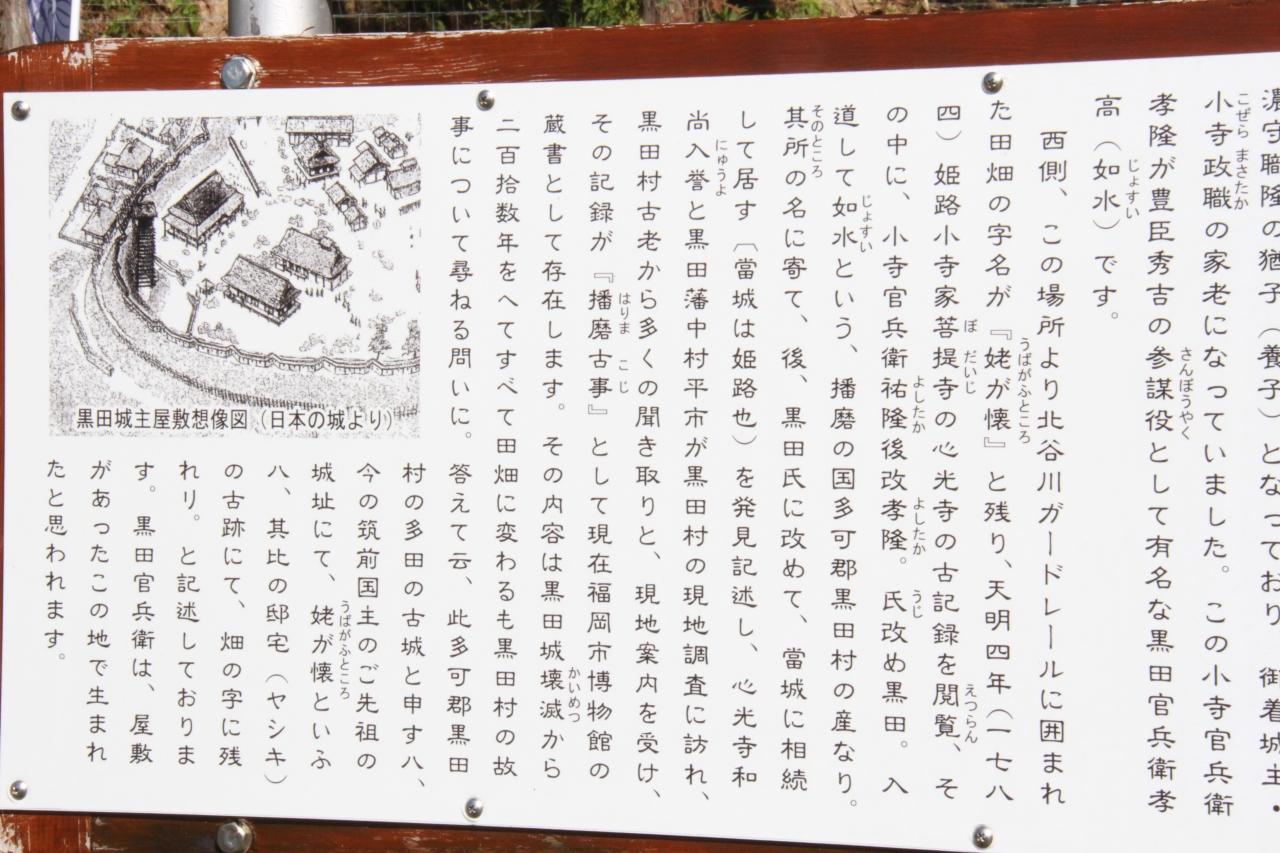 濃守職隆の猶子（養子）となっており 御着城主・
小寺政職の家老になっていました。この小寺官兵衛
こぜら まさたか
孝隆が豊臣秀吉の参謀役として有名な黒田官兵衛孝
さんぼうやく
高（如水）です。
じょすい
西側、この場所より北谷川ガードレールに囲まれ
た田畑の字名が『姥が懐』と残り、天明四年（一七八
うばがふところ
四）姫路小寺家菩提寺の心光寺の古記録を閲覧、そ
ぼ だいじ
えつらん
の中に、小寺官兵衛祐隆後改孝隆。氏改め黒田。入
よしたか
よしたか
うじ
道して如水という、播磨の国多可郡黒田村の産なり。
じょすい
其所の名に寄て、後、黒田氏に改めて、當城に相続
そのところ
して居す〔當城は姫路也）を発見記述し、心光寺和
尚入誉と黒田藩中村平市が黒田村の現地調査に訪れ、
にゅうよ
黒田村古老から多くの聞き取りと、現地案内を受け、
その記録が『播磨古事』として現在福岡市博物館の
はりま こじ
蔵書として存在します。その内容は黒田城壊滅から
かいめつ
二百拾数年をへてすべて田畑に変わるも黒田村の故
事について尋ねる問いに。答えて云、此多可郡黒田
村の多田の古城と申す八、
今の筑前国主のご先祖の
城址にて、姥が懐といふ
うばがふところ
八、其比の邸宅（ヤシキ）
の古跡にて、畑の字に残
れリ。と記述しておりま
す。黒田官兵衛は、屋敷
があったこの地で生まれ
たと思われます。
黒田城主屋敷想像図（日本の城より）